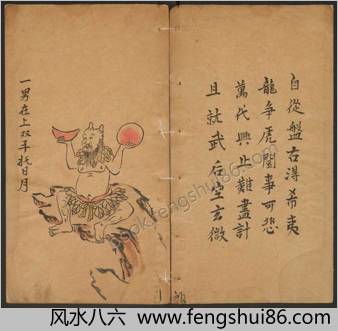 自從盤古得希夷
龍爭虎鬪事可悲
萬代興止難盡計
且就武后定玄微
一男在上双手托日月
风水八六 www.fengshui86.com